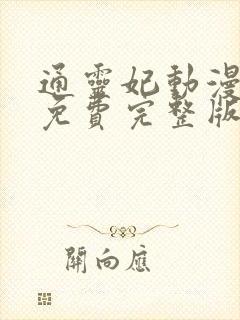 通靈妃動漫
免費完整版
開向應